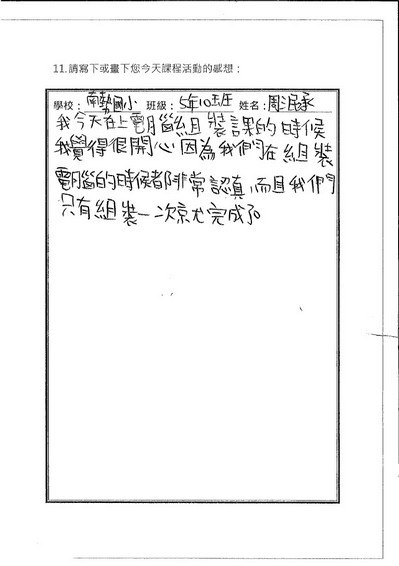 11.請寫下或畫下您今天課程活動的感想：
學校：南勢國小 班級：5年10班 姓名：周泯承
我今天在上電腦組裝課的時候
我覺得很開心因為我們在組裝
電腦的時候都非常認真，而且我們
只有組裝一次就完成了。